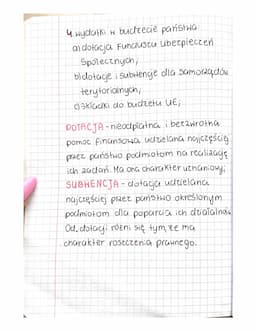 4. wydatki w budżecie państwa
a) dotacja Funduszu Ubezpieczeń
Społecznych,
b) dotacje i subwencje dla samorządów
terytorialnych,
c) składki do budżetu UE,
DOTACJA - nieodpłatna i bezzwrotna
pomoc finansowa udzielana najczęściej
przez państwo podmiotom na realizację
ich zadań. Ma ona charakter uznaniowy;
SUBWENCJA - dotacja udzielana
najczęściej przez państwo określonym
podmiotom dla poparcia ich działalności
Od dotacji różni się tym, że ma
charakter roszczenia prawnego.